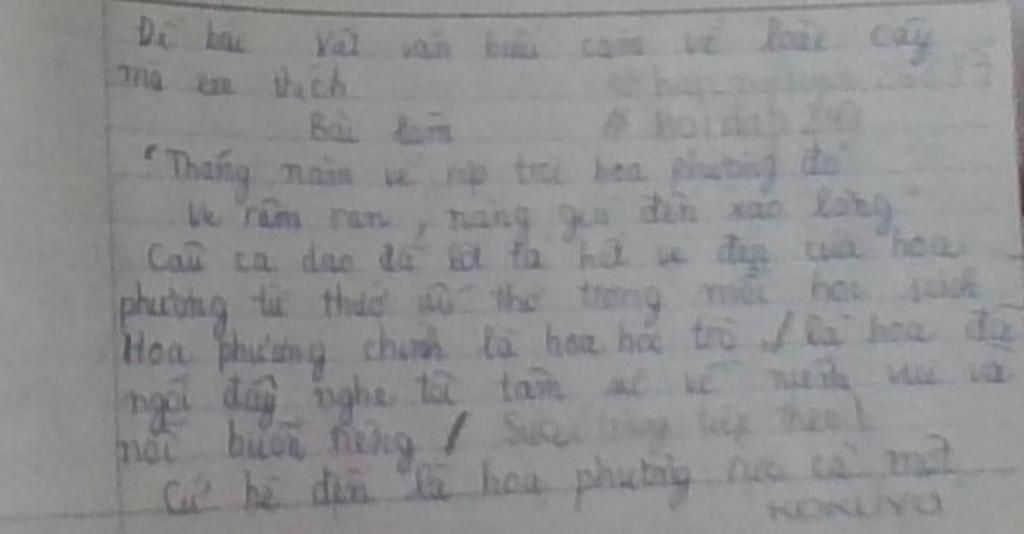 Đề bài Viết văn biểu cảm về loài cây
mà em thích
Bài làm # hoidap247
"Tháng năm về rợp trời hoa phượng đỏ
Ve râm ran, nắng gió đến xao lòng"
Câu ca dao đã lột tả hết vẻ đẹp của hoa
phượng từ thuở ấu thơ trong mỗi học sinh
Hoa phượng chính là hoa học trò / là hoa đã
ngồi đấy nghe tôi tâm sự về niềm vui và
nỗi buồn riêng / Sửa trang tiếp theo
Cứ hè đến là hoa phượng rực cả một
KOKUYO